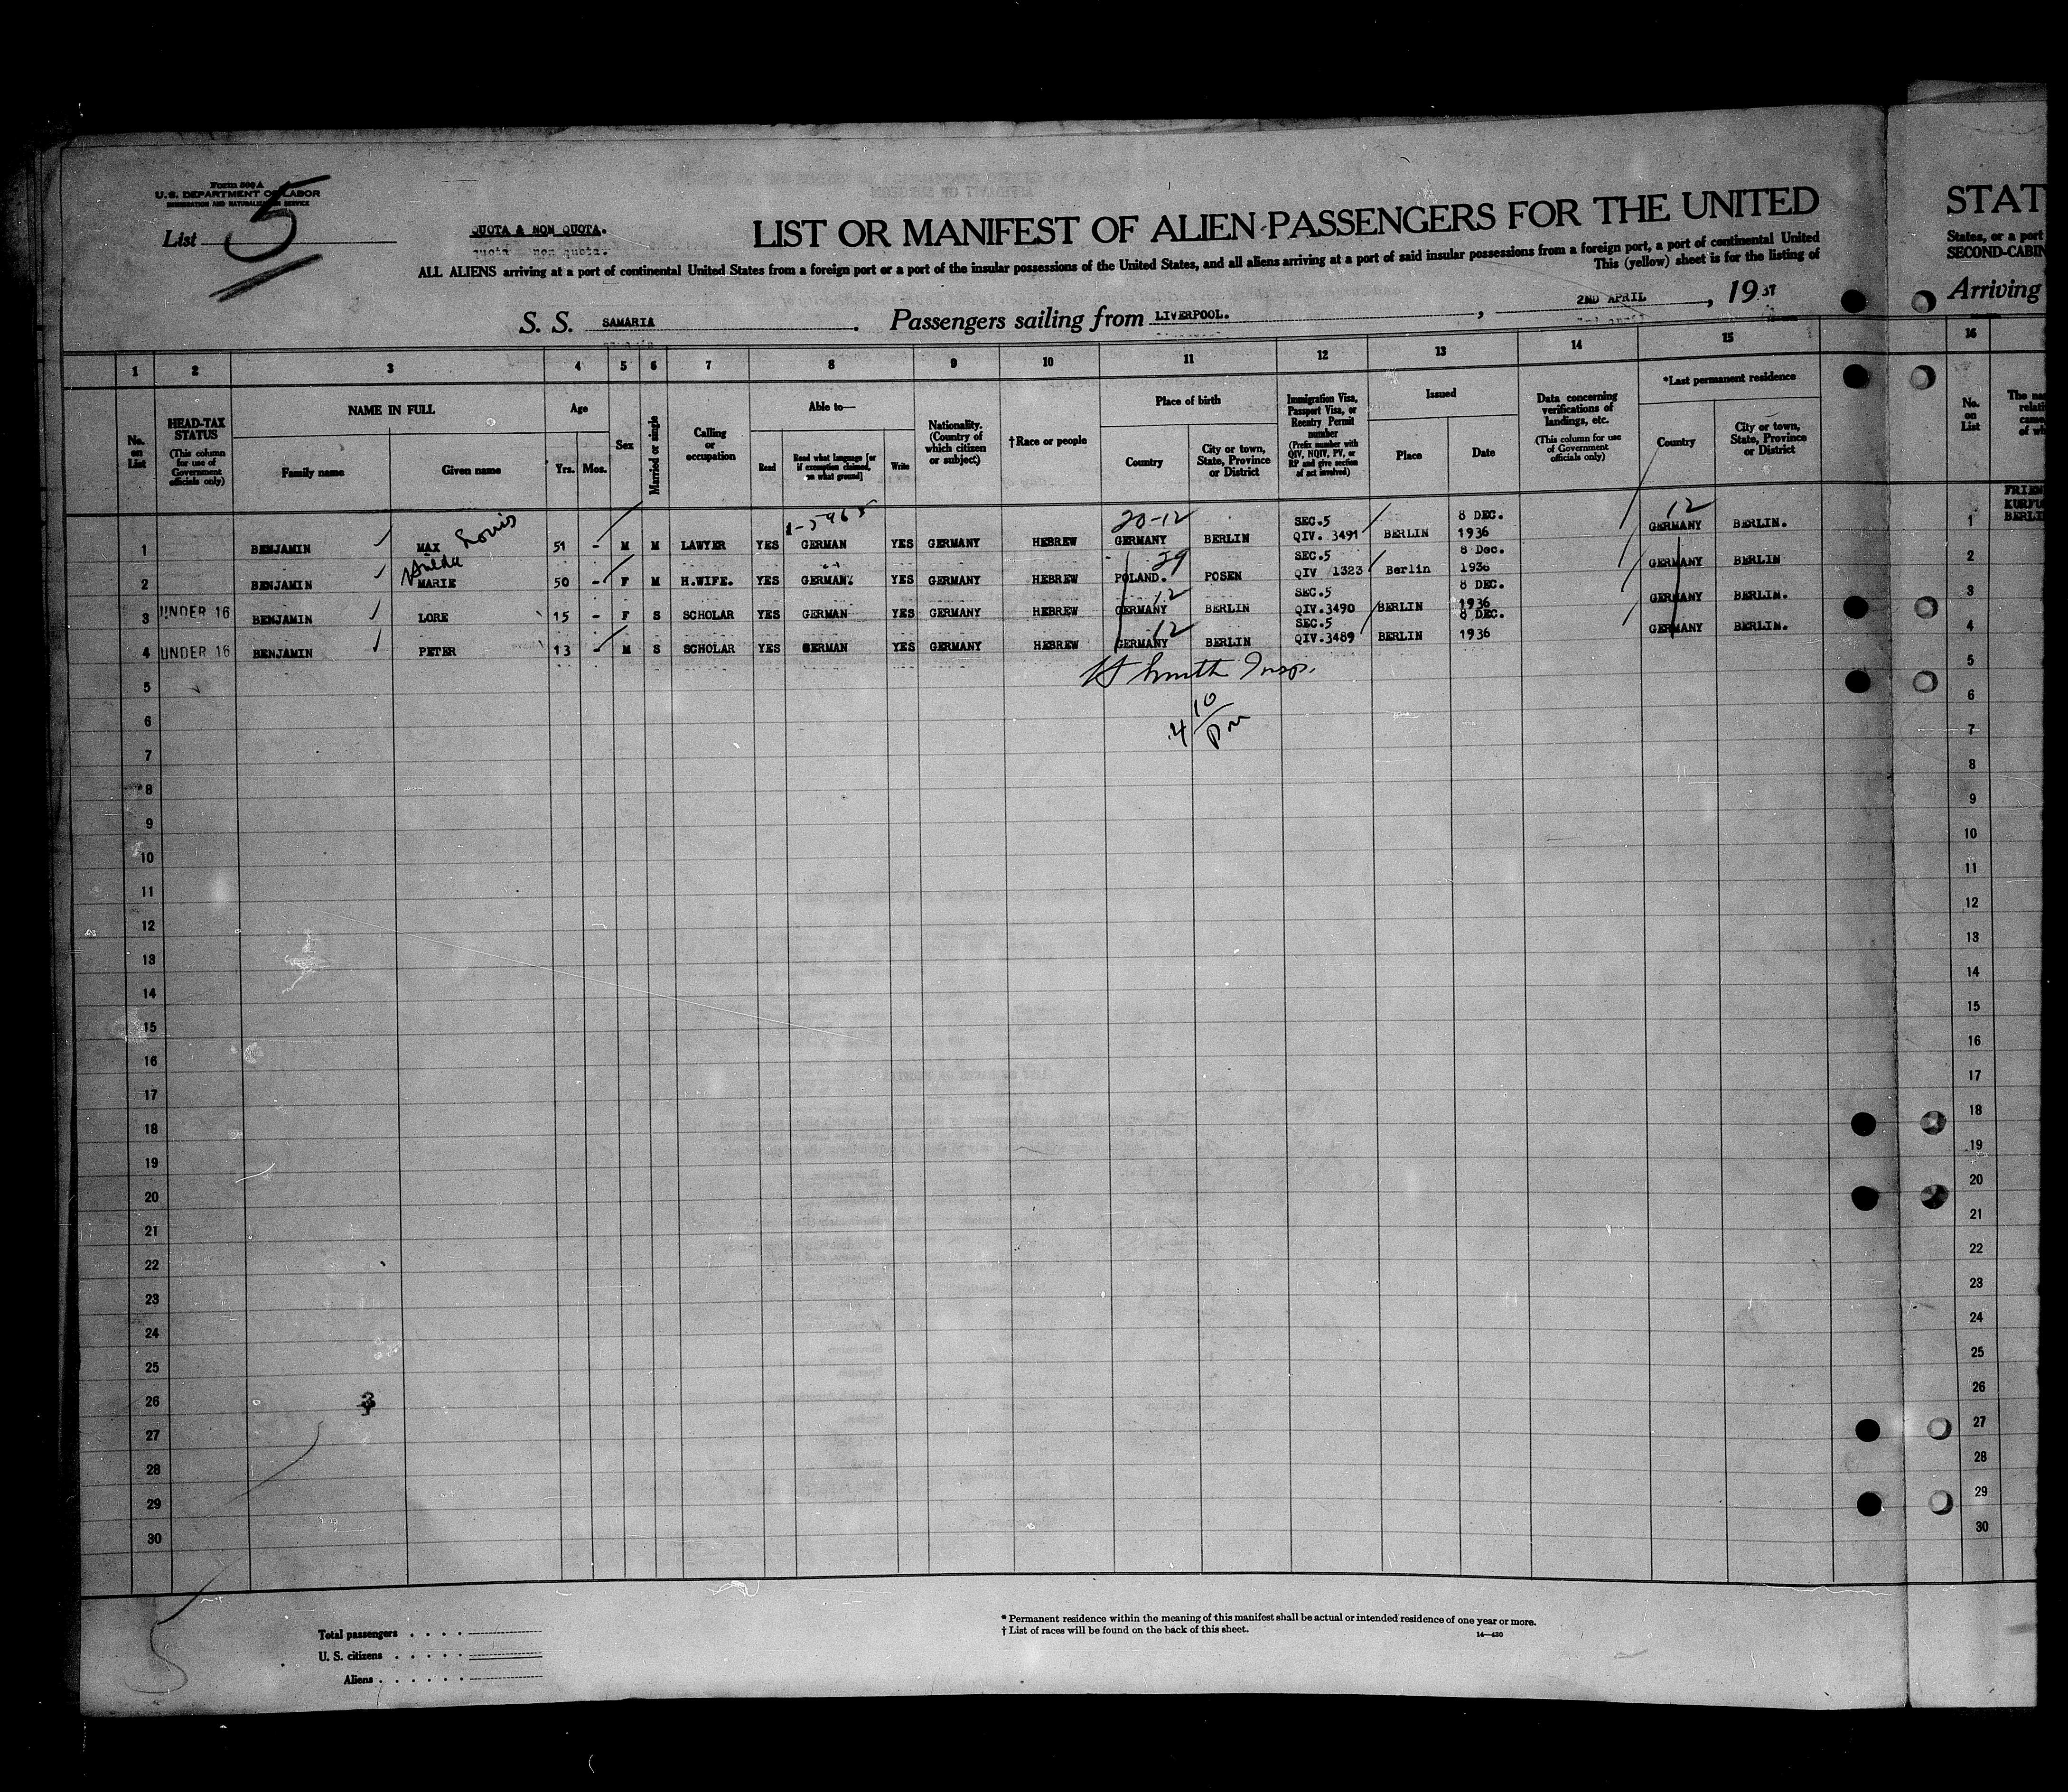 Form 500 A
U. S. DEPARTMENT OF LABOR
IMMIGRATION AND NATURALIZATION SERVICE
List 5
QUOTA & NON QUOTA.
LIST OR MANIFEST OF ALIEN PASSENGERS FOR THE UNITED
ALL ALIENS arriving at a port of continental United States from a foreign port or a port of the insular possessions of the United States, and all aliens arriving at a port of said insular possessions from a foreign port, a port of continental United
This (yellow) sheet is for the listing of
S. S. SAMARIA. Passengers sailing from LIVERPOOL., 2ND APRIL, 1937
STAT
States, or a port
SECOND-CABIN
Arriving
1 2 3 4 5 6 7 8 9 10 11 12 13 14 15 16
No. on List
HEAD-TAX STATUS (This column for use of Government officials only)
NAME IN FULL
Family name
Given name
Age
Yrs. Mos.
Sex
Married or single
Calling or occupation
Able to—
Read
Read what language [or if exemption claimed, on what ground]
Write
Nationality. (Country of which citizen or subject)
†Race or people
Place of birth
Country
City or town, State, Province or District
Immigration Visa, Passport Visa, or Reentry Permit number (Prefix number with QIV, NQIV, PV, or RP and give section of act involved)
Issued
Place
Date
Data concerning verifications of landings, etc. (This column for use of Government officials only)
*Last permanent residence
Country
City or town, State, Province or District
No. on List
1 BENJAMIN MAX Louis 51 - M M LAWYER YES GERMAN YES GERMANY HEBREW 20-12 GERMANY BERLIN SEC.5 QIV. 3491 BERLIN 8 DEC. 1936 12 GERMANY BERLIN. 1
2 BENJAMIN Hilda MARIE 50 - F M H.WIFE. YES GERMAN. YES GERMANY HEBREW 29 POLAND. POSEN SEC.5 QIV 1323 Berlin 8 Dec. 1936 GERMANY BERLIN 2
3 UNDER 16 BENJAMIN LORE 15 - F S SCHOLAR YES GERMAN YES GERMANY HEBREW 12 GERMANY BERLIN SEC.5 QIV.3490 BERLIN 8 DEC. 1936 GERMANY BERLIN. 3
4 UNDER 16 BENJAMIN PETER 13 - M S SCHOLAR YES GERMAN YES GERMANY HEBREW 12 GERMANY BERLIN SEC.5 QIV.3489 BERLIN 8 DEC. 1936 GERMANY BERLIN. 4
Smith Insp.
4 10/pm
5 5
6 6
7 7
8 8
9 9
10 10
11 11
12 12
13 13
14 14
15 15
16 16
17 17
18 18
19 19
20 20
21 21
22 22
23 23
24 24
25 25
26 26
27 27
28 28
29 29
30 30
Total passengers
U. S. citizens
Aliens
* Permanent residence within the meaning of this manifest shall be actual or intended residence of one year or more.
† List of races will be found on the back of this sheet.
14—430